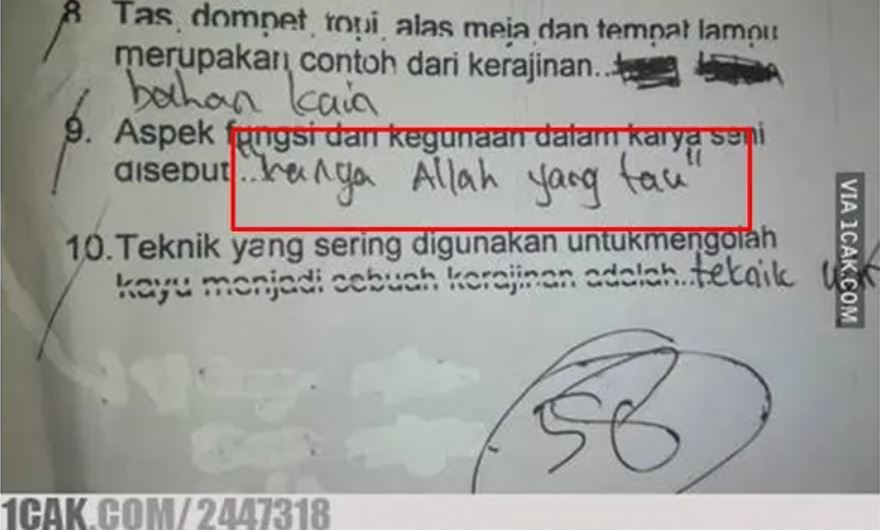 8 Tas, dompet, topi, alas meja dan tempat lampu
merupakan contoh dari kerajinan..
bahan kain
9. Aspek fungsi dan kegunaan dalam karya seni
disebut.."hanya Allah yang tau"
10.Teknik yang sering digunakan untukmengolah
kayu menjadi sebuah kerajinan adalah..teknik
56
VIA 1CAK.COM
1CAK.COM/2447318